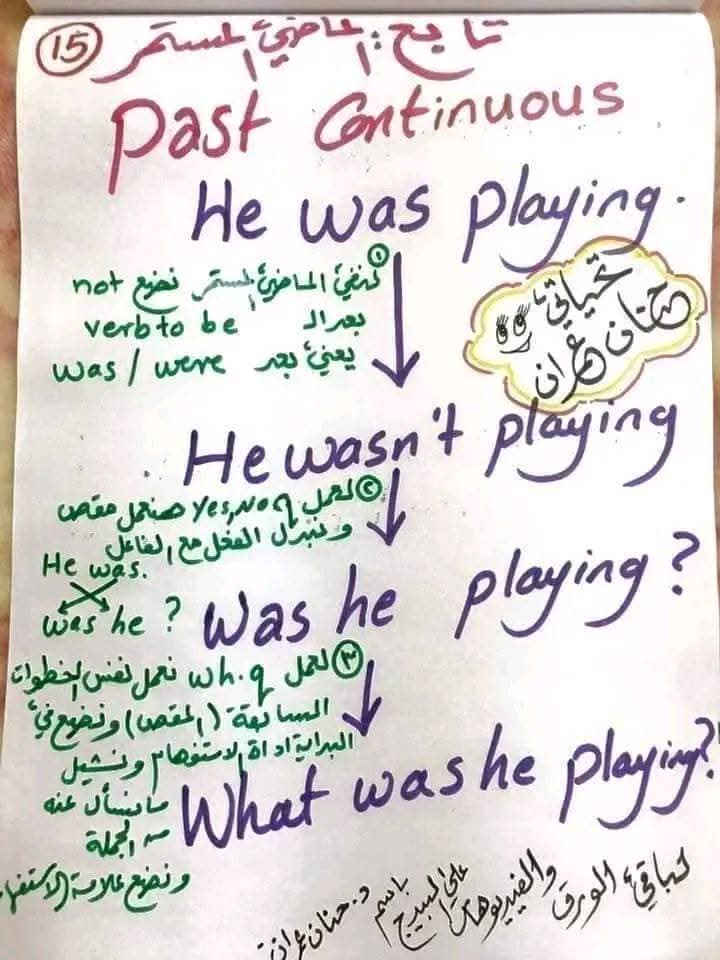 15 تابع: الماضي المستمر
Past Continuous
He was playing.
① لنفي الماضي المستمر نضع not
بعد الـ verb to be
يعني بعد was / were
تحياتي
حنان عمران
He wasn't playing
② لعمل Yes, No q هنعمل مقص
ونبدل الفعل مع الفاعل
He was.
was he ?
Was he playing?
③ لعمل wh.q نعمل نفس الخطوات
السابقة (المقص) ونضع في
البداية اداة الاستفهام ونشيل
ما نسأل عنه
من الجملة
ونضع علامة الاستفها
What was he playing?
لباقي الورق والفيديوهات على البيدج باسم د. حنان عمران